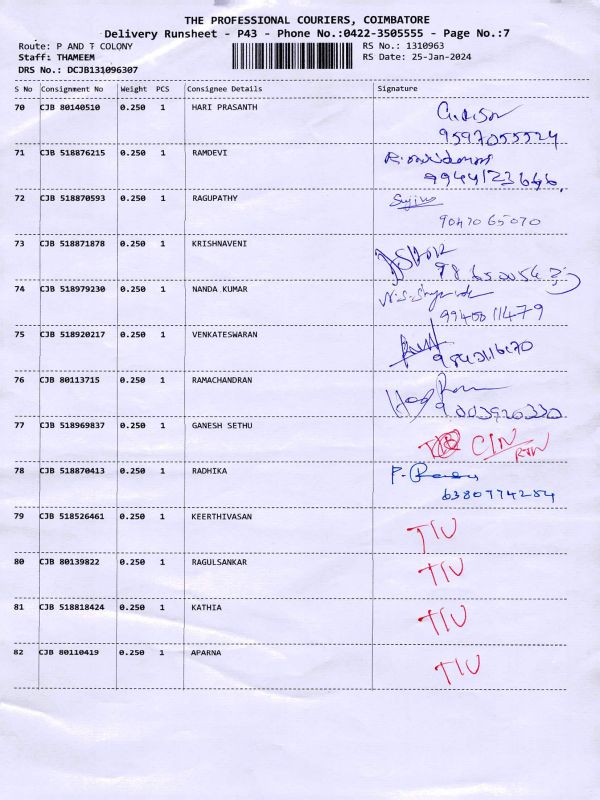 THE PROFESSIONAL COURIERS, COIMBATORE
Delivery Runsheet - P43 - Phone No.:0422-3505555 - Page No.:7
Route: P AND T COLONY
RS No.: 1310963
Staff: THAMEEM
RS Date: 25-Jan-2024
DRS No.: DCJB131096307
S No Consignment No Weight PCS Consignee Details Signature
70 CJB 80140510 0.250 1 HARI PRASANTH
9597055524
71 CJB 518876215 0.250 1 RAMDEVI
9944123666
72 CJB 518870593 0.250 1 RAGUPATHY
9047065070
73 CJB 518871878 0.250 1 KRISHNAVENI
74 CJB 518979230 0.250 1 NANDA KUMAR
9945011479
75 CJB 518920217 0.250 1 VENKATESWARAN
76 CJB 80113715 0.250 1 RAMACHANDRAN
77 CJB 518969837 0.250 1 GANESH SETHU
CIN
RTN
78 CJB 518870413 0.250 1 RADHIKA
6380774284
79 CJB 518526461 0.250 1 KEERTHIVASAN
TIU
80 CJB 80139822 0.250 1 RAGULSANKAR
TIU
81 CJB 518818424 0.250 1 KATHIA
TIU
82 CJB 80110419 0.250 1 APARNA
TIU